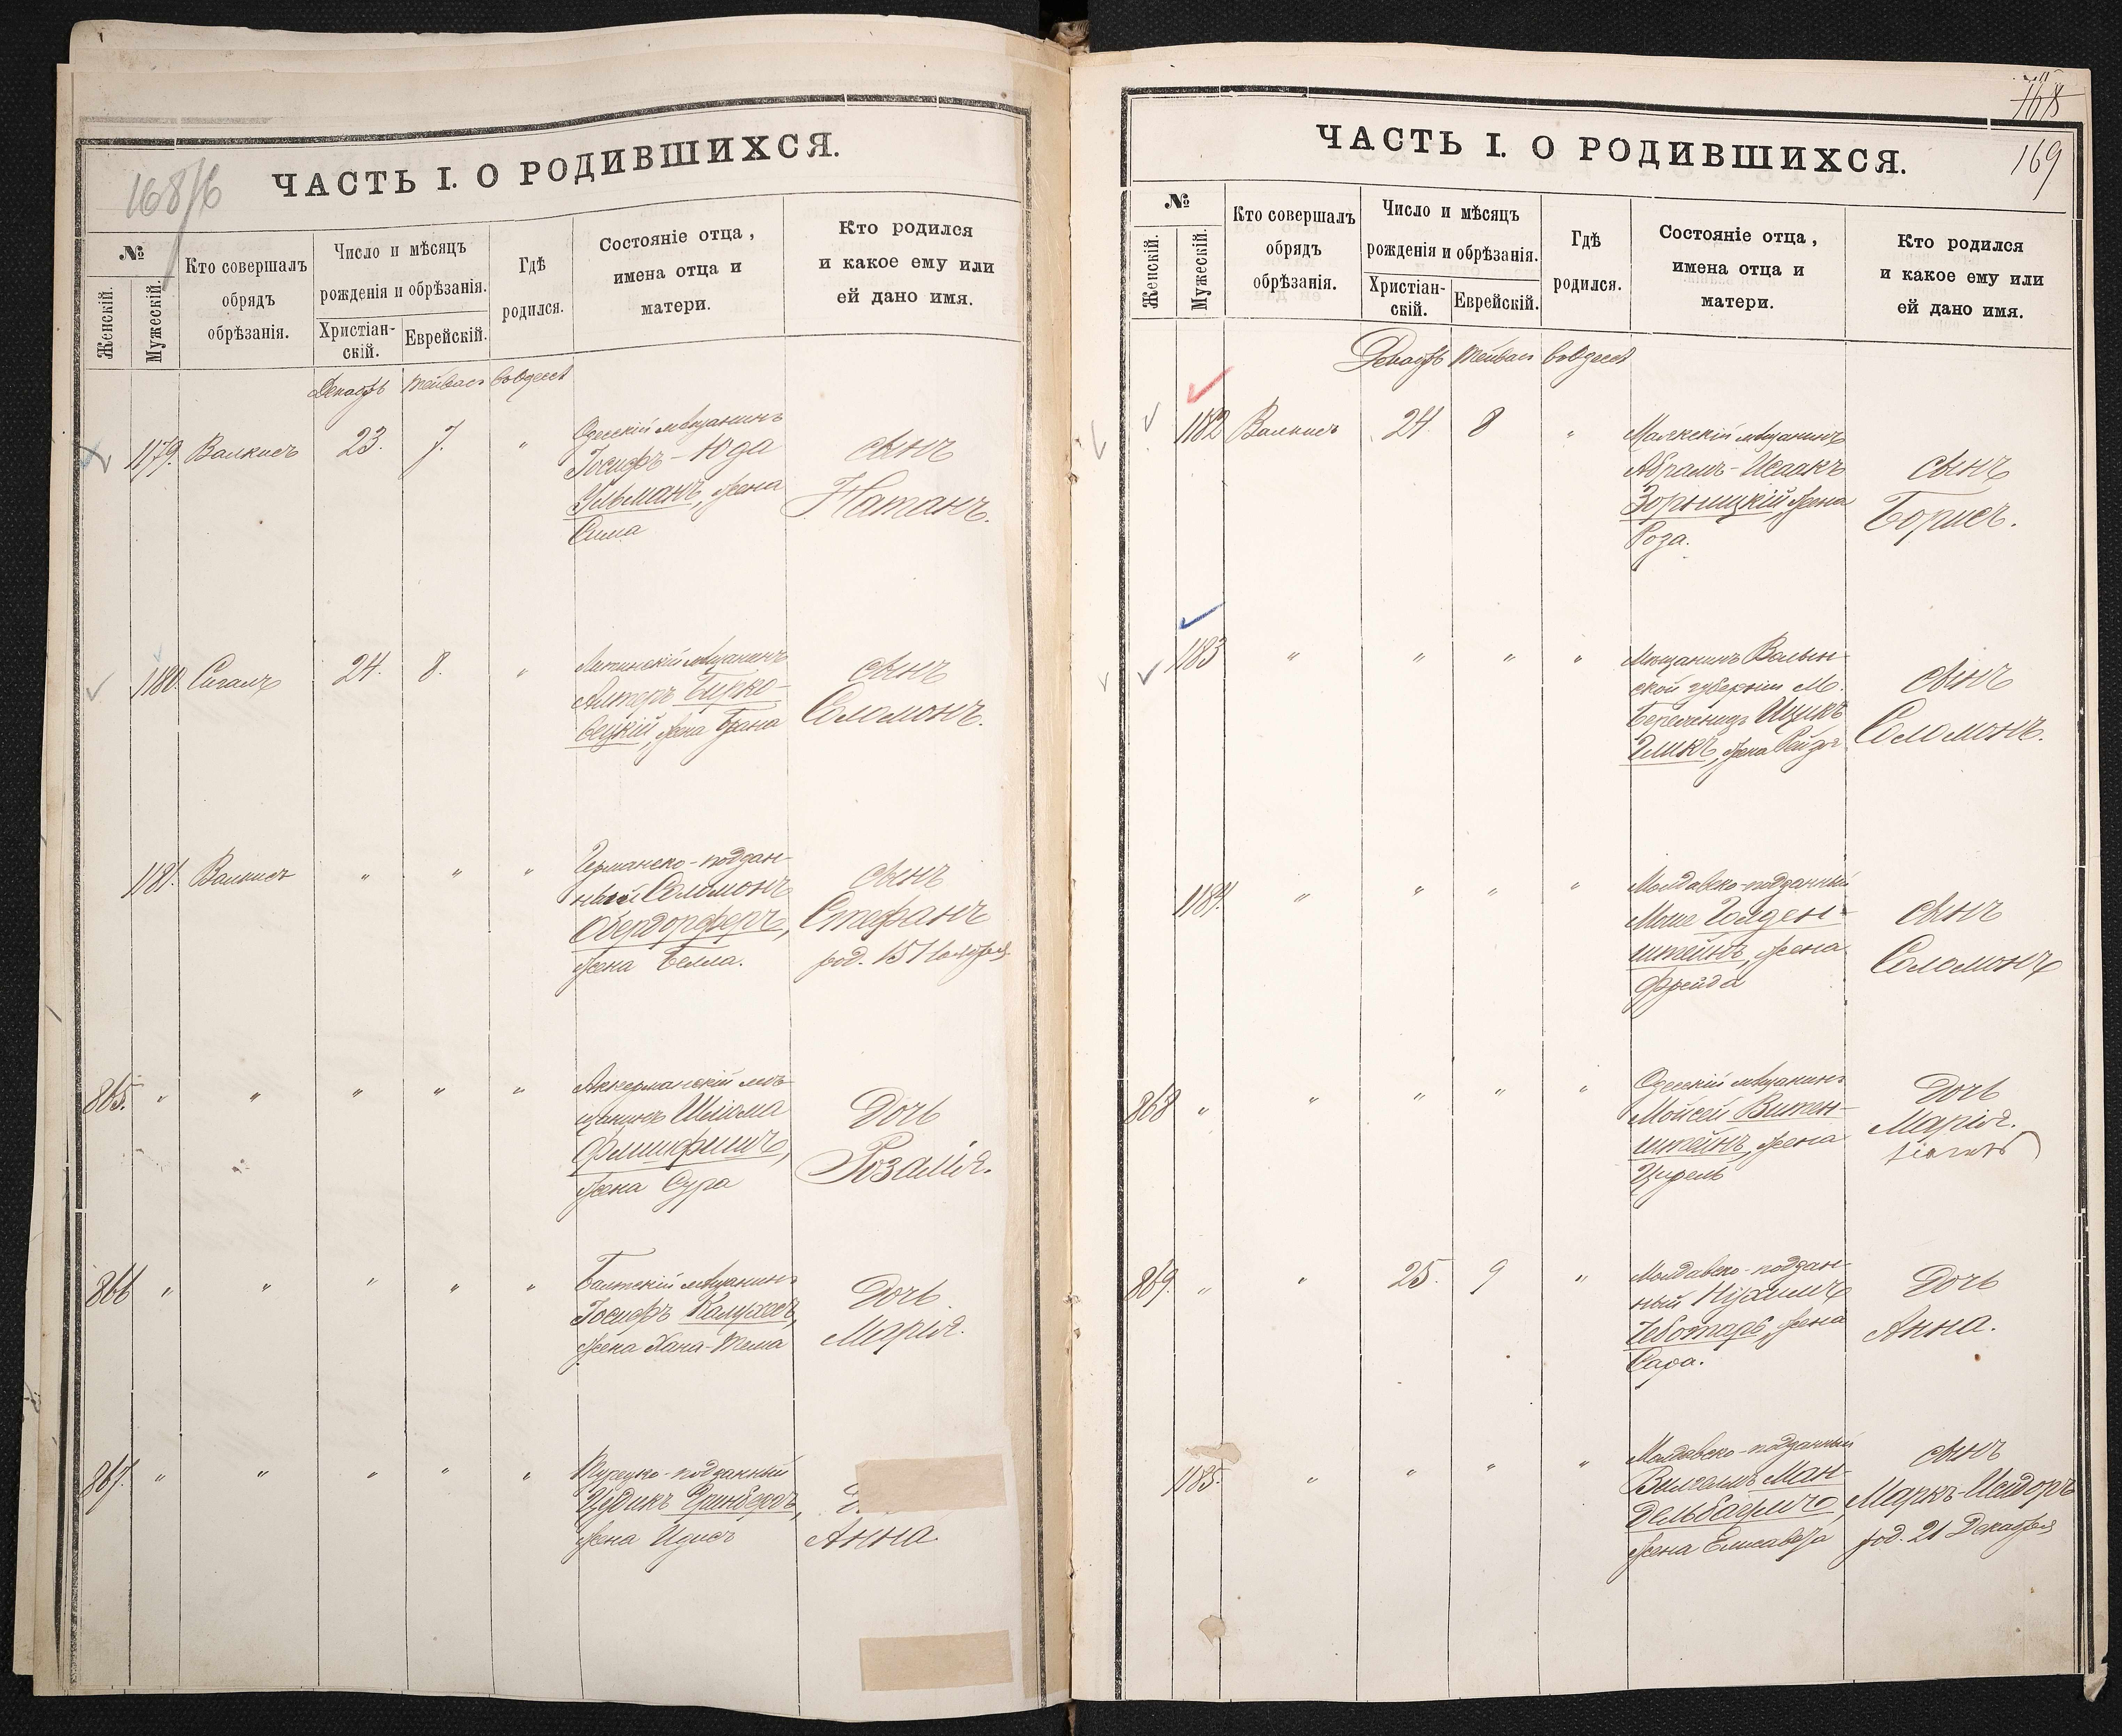 168/6
ЧАСТЬ I. О РОДИВШИХСЯ.
№
Женскій.
Мужескій.
Кто совершалъ
обрядъ
обрѣзанія.
Число и мѣсяцъ
рожденія и обрѣзанія.
Христіан-
скій.
Еврейскій.
Гдѣ
родился.
Состояніе отца,
имена отца и
матери.
Кто родился
и какое ему или
ей дано имя.
Декабрь Тейвас въ Одессѣ
1179. Валкисъ 23. 7. "
Одесскій мѣщанинъ
Іосифъ-Юда
Ульманъ, жена
Сима
сынъ
Натанъ.
1180. Сигалъ 24. 8. "
мѣщанинъ
Алтеръ Бирко-
вецкій, жена
сынъ
Соломонъ.
1181. Валкисъ " " "
Германско-поддан-
ный Соломонъ
Обердорферъ,
жена Белла.
сынъ
Стефанъ
род. 15 Ноября
865. " " " " "
Аккерманскій мѣ-
щанинъ Шлiома
Флишфишъ,
жена Сура
Дочь
Розалія.
866 " " " " "
Балтскій мѣщанинъ
Іосифъ Калусъ,
жена Хана-Тема
Дочь
Марія.
867. " " " " "
Турецко-подданный
Цудикъ Гринбергъ,
жена Идисъ
Д
Анна
168
169
ЧАСТЬ I. О РОДИВШИХСЯ.
№
Женскій.
Мужескій.
Кто совершалъ
обрядъ
обрѣзанія.
Число и мѣсяцъ
рожденія и обрѣзанія.
Христіан-
скій.
Еврейскій.
Гдѣ
родился.
Состояніе отца,
имена отца и
матери.
Кто родился
и какое ему или
ей дано имя.
Декабрь Тейвас въ Одессѣ
1182 Валкисъ 24. 8 "
Маякскій мѣщанинъ
Абрамъ-Исаакъ
Зорницкій, жена
Роза.
сынъ
Борисъ.
1183 " " " "
Мѣщанинъ Волын-
ской губерніи М.
Ицикъ
Гликъ, жена Рейзя
сынъ
Соломонъ.
1184. " " " "
Молдавско-подданный
Моше Голден-
штейнъ, жена
Фрейда
сынъ
Соломонъ
868 " " " " "
Одесскій мѣщанинъ
Мойсей Витен-
штейнъ, жена
Цирель
Дочь
Марія.
869. " " 25. 9 "
Молдавско-поддан-
ный Нухимъ
Чеботарь, жена
Сара.
Дочь
Анна.
1185. " " " "
Молдавско-подданный
Вилгелмъ Ман-
дельбаумъ,
жена Елисавета
сынъ
Маркъ-Исидоръ
род. 21 Декабря